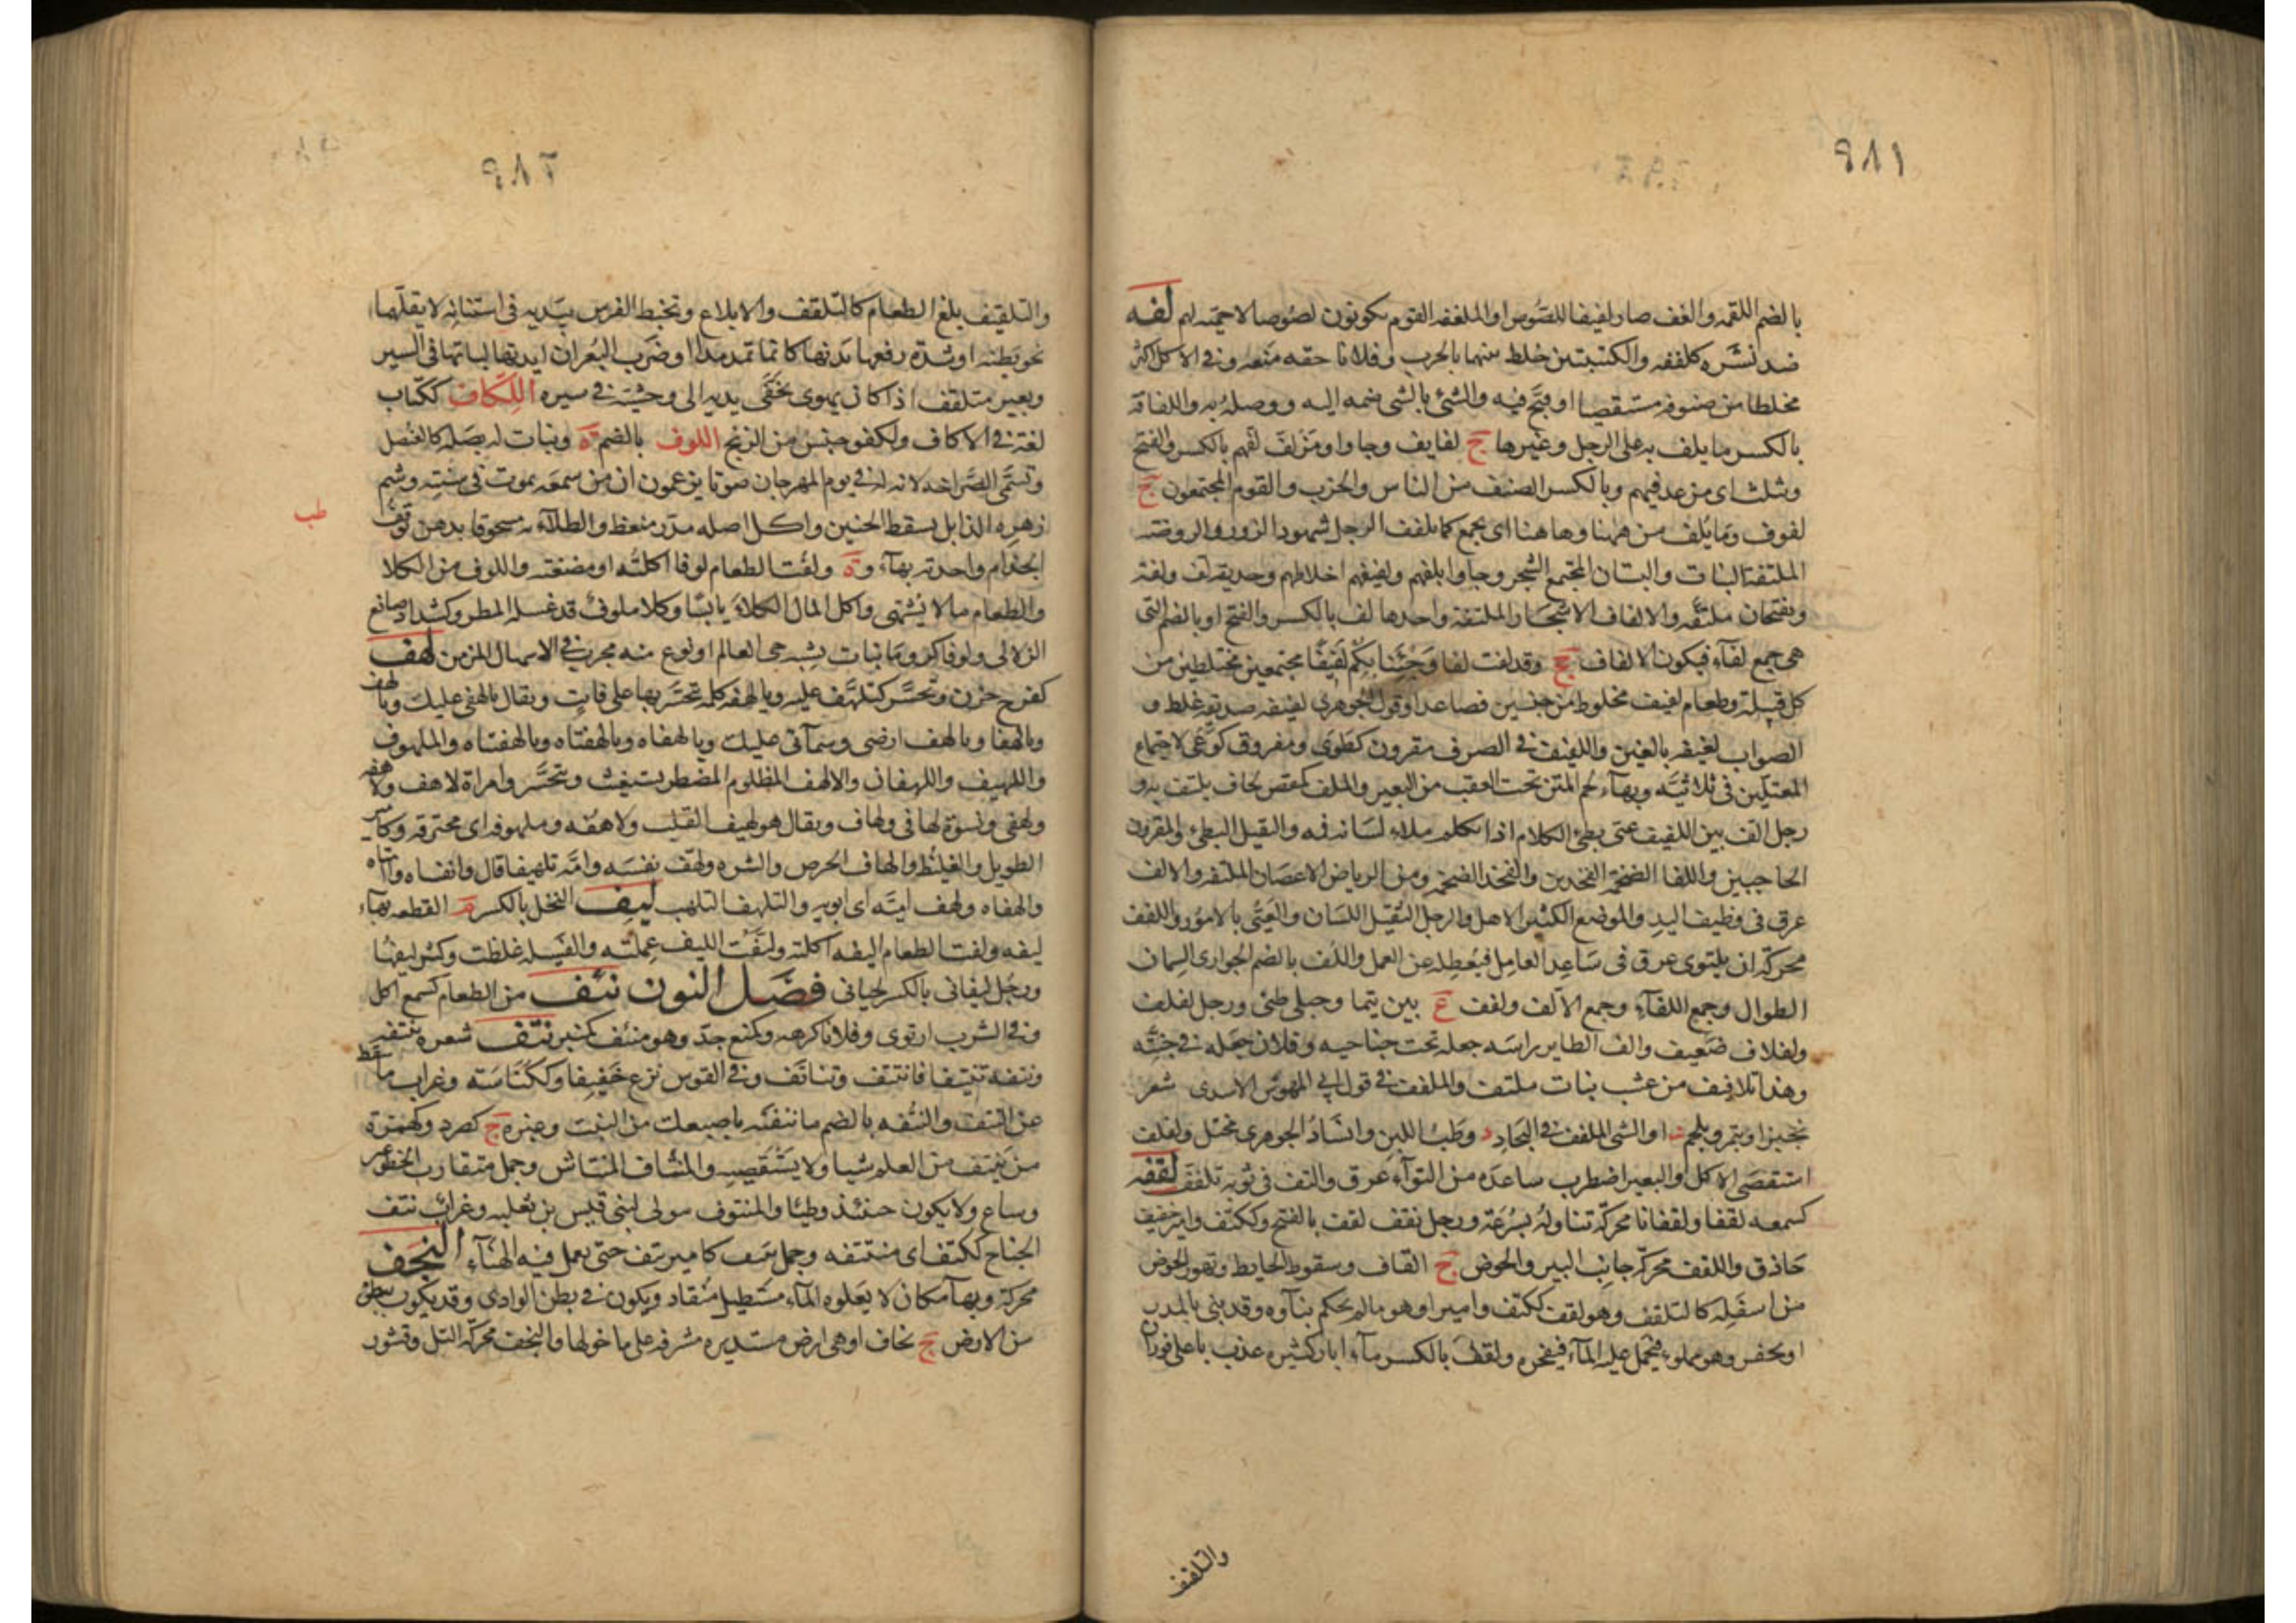 ٩٨١
بالضم اللقمه والغف صار لفيفا للصوص او الملغفه القوم يكونون لصوصا لا حميه لهم لفه
ضد نشره كلففه والكتيبتين خلط بينهما بالحرب وفلانا حقه منعه وفى الاكل اكثر
مخلطا من صنوفه مستقصيا او قبح فيه والشئ بالشئ ضمه اليه ووصله به واللفافة
بالكسر ما يلف به على الرجل وغيرها ج لفايف وجاوا ومن لف لفهم بالكسر والفتح
ويثلث اى من عد فيهم وبالكسر الصنف من الناس والحزب والقوم المجتمعون ج
لفوف وما يلف من ههنا وها هنا اى يجمع كما يلفف الرجل شهود الزور والروضة
الملتفة النبات والبستان المجتمع الشجر وجاوا بلفهم ولفيفهم اخلاطهم وحديقة لف ولفة
ويفتحان ملتفة والالفاف الاشجار الملتفة واحدها لف بالكسر والفتح او بالضم التى
هى جمع لفآء فيكون الالفاف جج وقد لفت لفا وجئنا بكم لفيفا مجتمعين مختلطين من
كل قبيلة وطعام لفيف مخلوط من جنسين فصاعدا وقول الجوهرى لفيفه صديقه غلط و
الصواب لغيفه بالغين واللفيف فى الصرف مقرون كطوى ومفروق كوعى لاجتماع
المعتلين فى ثلاثيه وبهآء لحم المتن تحت العقب من البعير والملف كمقص لحاف يلتف به و
رجل الف بين اللفف عى بطئ الكلام اذا تكلم ملاء لسانه فمه والثقيل البطئ والمقرون
الحاجبين واللفا الضخمة الفخذين والفخذ الضخمه ومن الرياض الاغصان الملتفه والالف
عرق فى وظيف اليد والموضع الكثير الاهل والرجل الثقيل اللسان والعيى بالامور واللفف
محركة ان يلتوى عرق فى ساعد العامل فيعطله عن العمل واللف بالضم الجوارى السمان
الطوال وجمع اللفآء وجمع الالف ولفف ع بين تيما وجبلى طئ ورجل لفلف
ولفلاف ضعيف والف الطاير راسه جعله تحت جناحيه وفلان جعله فى جبته
وهنا تلافيف من عشب نبات ملتف والملفف فى قول ابى المهوس الاسدى شعر
بخبز او بتمر او بلحم او الشئ الملفف فى البجاد وطب اللبن وانشاد الجوهرى مختل ولفلف
استقصى الاكل والبعير اضطرب ساعده من التوآء عرق والتف فى ثوبه تلفف لقفه
كسمعه لقفا ولقفانا محركة تناوله بسرعة ورجل ثقف لقف بالفتح وككتف وامير خفيف
حاذق واللقف محركة جانب البير والحوض ج القاف وسقوط الحايط وتهور الحوض
من اسفله كالتلقف وهو لقف ككتف وامير او هو ما لم يحكم بنآوه وقد بنى بالمدر
او يحفر وهو مملوء فيحمل عليه المآء فيفجره ولقف بالكسر مآء ابار كثيره عذب باعلى قوران
والتلقيف
٩٨٢
والتلقيف بلغ الطعام كالتلقف والابلاع وتخبط الفرس بيديه فى استنانه لا يقلهما
نحو بطنه او شدة رفعها يدنها كانما تمد مدا او ضرب البعران ايديها لباتها فى السير
وبعير متلقف اذا كان يهوى بخفى يديه الى وحشيه فى سيره اللكاف ككتاب
لغة فى الاكاف ولكفو جنس من الزنج اللوف بالضم ة ونبات له بصلة كالعنصل
وتسمى الصراخة لانه له فى يوم المهرجان صوتا يزعمون ان من سمعه يموت فى سنته وشم
زهره الذابل يسقط الجنين واكل اصله مدر منعظ والطلآء به مسحوقا بدهن يوقف
طب
الجذام واحدته بهآء وة ولفت الطعام لوفا اكلته او مضغته واللوف من الكلا
والطعام ما لا يشتهى واكل المال الكلاء يابسا وكلا ملوف قد غسله المطر وكشداد صانع
الزلالى ولوفاكر وما نبات يشبه حى العالم او نوع منه مجرب فى الاسهال المزمن لهف
كفرح حزن وتحسر كتلهف عليه ويا لهفه كلمة تحسر بها على فايت ويقال يا لهفى عليك ويا لهف
ويا لهفا ويا لهف ارضى وسمآئى عليك ويا لهفاه ويا لهفتاه ويا لهفتياه والملهوف
واللهيف واللهفان والالهف المظلوم المضطر يستغيث ويتحسر وامراة لاهف ولاهفه
ولهفى ونسوة لهافى ولهاف ويقال هو لهيف القلب ولاهفه وملهوفه اى محترقه وكامير
الطويل والغليظ والهاف الحرص والشره ولهف نفسه وامه تلهيفا قال وانفساه واامتاه
والهفاه ولهف اميه اى ابويه والتلهف التلهب ليف النخل بالكسر م القطعه بهآء
ليفه ولفت الطعام اليفه اكلته وليفت الليف عملته والفسيله غلظت وكثر ليفها
ورجل ليفانى بالكسر لحيانى فصل النون نئف من الطعام كسمع اكل
وفى الشرب ارتوى وفلانا كرهه وكمنع جد وهو منئف كمنبر نتف شعره ينتفه
ونتفه تنتيفا فانتتف وتناتف وفى القوس نزع خفيفا وككناسه ما سقط
عن النتف والنتفه بالضم ما نتفته باصبعك من النبت وغيره ج كصرد وكهمزة
من ينتف من العلم شيا ولا يستقصيه والمنتاف المنتاش وجمل متقارب الخطو غير
وساع ولا يكون حينئذ وطيئا والمنتوف مولى لبنى قيس بن ثعلبه وغراب نتف
الجناح ككتف اى منتتفه وجمل نتيف كامير نتف حتى يعمل فيه الهنآء النجف
محركة وبهآء مكان لا يعلوه المآء مستطيل منقاد ويكون فى بطن الوادى وقد يكون ببطن
من الارض ج نجاف او هى ارض مستديره مشرفه على ما حولها والنجف محركة التل وقشور